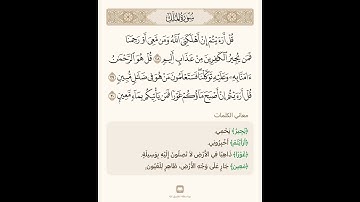 سُورَةُ المُلْكِ
قُلْ أَرَءَيْتُمْ إِنْ أَهْلَكَنِيَ ٱللَّهُ وَمَن مَّعِيَ أَوْ رَحِمَنَا
فَمَن يُجِيرُ ٱلْكَٰفِرِينَ مِنْ عَذَابٍ أَلِيمٍ ٢٨ قُلْ هُوَ ٱلرَّحْمَٰنُ
ءَامَنَّا بِهِۦ وَعَلَيْهِ تَوَكَّلْنَا فَسَتَعْلَمُونَ مَنْ هُوَ فِي ضَلَٰلٍ مُّبِينٍ ٢٩
قُلْ أَرَءَيْتُمْ إِنْ أَصْبَحَ مَآؤُكُمْ غَوْرًا فَمَن يَأْتِيكُم بِمَآءٍ مَّعِينٍ ٣٠
معاني الكلمات
﴿يُجِيرُ﴾ يَحْمِي.
﴿أَرَأَيْتُمْ﴾ أَخْبِرُونِي.
﴿غَوْرًا﴾ ذَاهِبًا فِي الأَرْضِ لَا تَصِلُونَ إِلَيْهِ بِوَسِيلَةٍ.
﴿مَعِينٍ﴾ جَارٍ عَلَى وَجْهِ الأَرْضِ، ظَاهِرٍ لِلْعُيُونِ.